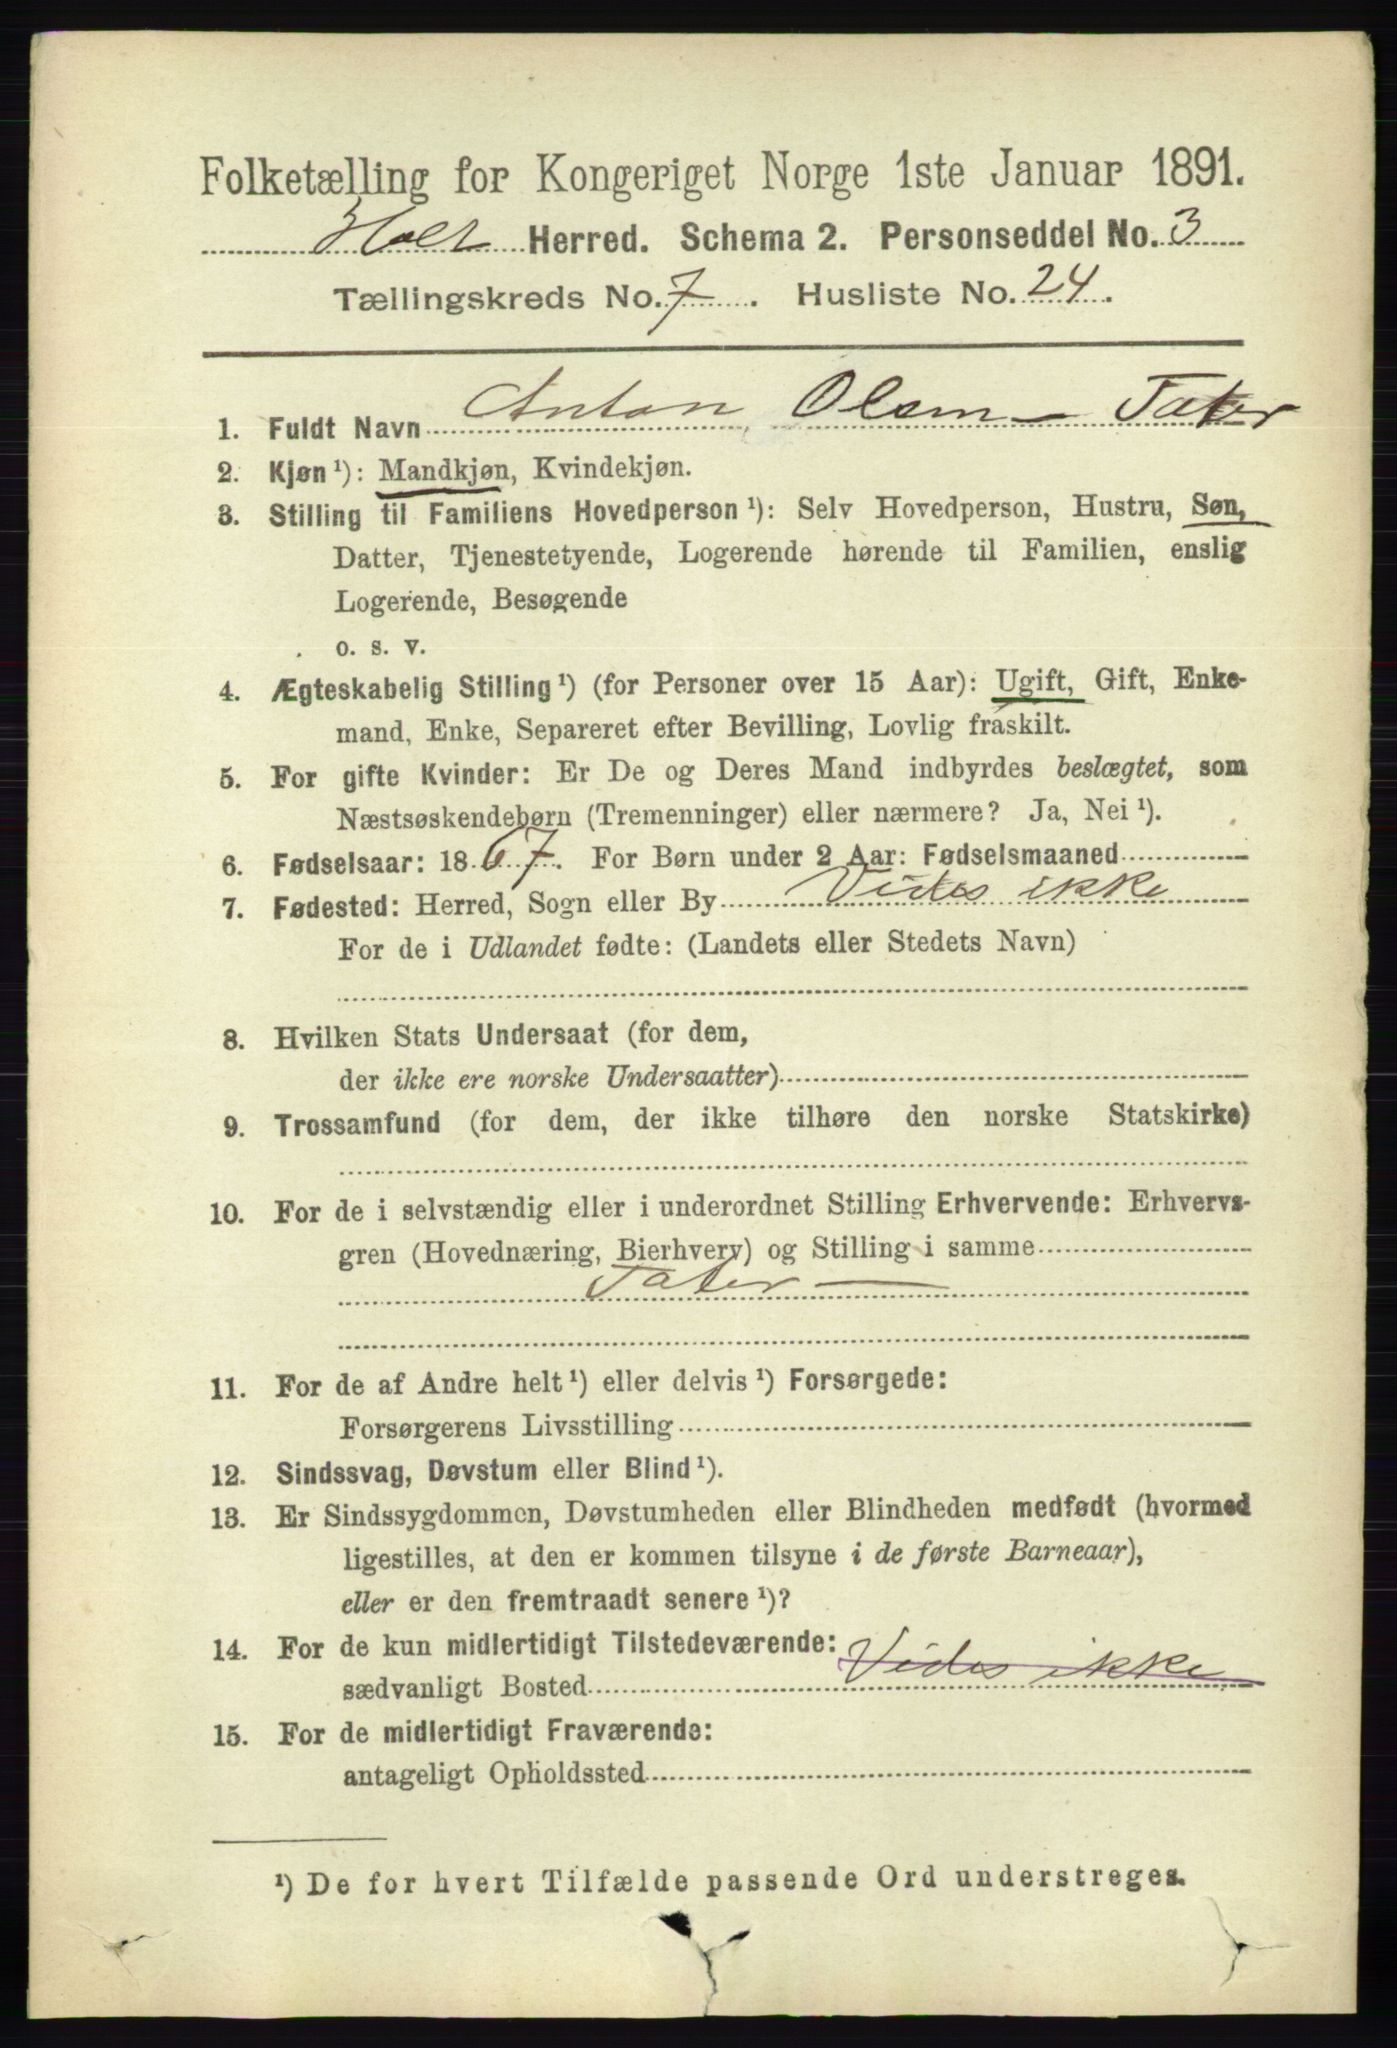 Folketælling for Kongeriget Norge 1ste Januar 1891.
Holt Herred. Schema 2. Personseddel No. 3
Tællingskreds No. 7. Husliste No. 24.
1. Fuldt Navn Anton Olsen - Tater
2. Kjøn ¹): Mandkjøn, Kvindekjøn.
3. Stilling til Familiens Hovedperson ¹): Selv Hovedperson, Hustru, Søn,
Datter, Tjenestetyende, Logerende hørende til Familien, enslig
Logerende, Besøgende
o. s. v.
4. Ægteskabelig Stilling ¹) (for Personer over 15 Aar): Ugift, Gift, Enke-
mand, Enke, Separeret efter Bevilling, Lovlig fraskilt.
5. For gifte Kvinder: Er De og Deres Mand indbyrdes beslægtet, som
Næstsøskendebørn (Tremenninger) eller nærmere? Ja, Nei ¹).
6. Fødselsaar: 1867. For Børn under 2 Aar: Fødselsmaaned
7. Fødested: Herred, Sogn eller By Vides ikke
For de i Udlandet fødte: (Landets eller Stedets Navn)
8. Hvilken Stats Undersaat (for dem,
der ikke ere norske Undersaatter)
9. Trossamfund (for dem, der ikke tilhøre den norske Statskirke)
10. For de i selvstændig eller i underordnet Stilling Erhvervende: Erhvervs-
gren (Hovednæring, Bierhverv) og Stilling i samme
Tater
11. For de af Andre helt ¹) eller delvis ¹) Forsørgede:
Forsørgerens Livsstilling
12. Sindssvag, Døvstum eller Blind ¹).
13. Er Sindssygdommen, Døvstumheden eller Blindheden medfødt (hvormed
ligestilles, at den er kommen tilsyne i de første Barneaar),
eller er den fremtraadt senere ¹)?
14. For de kun midlertidigt Tilstedeværende:
sædvanligt Bosted Vides ikke
15. For de midlertidigt Fraværende:
antageligt Opholdssted
¹) De for hvert Tilfælde passende Ord understreges.